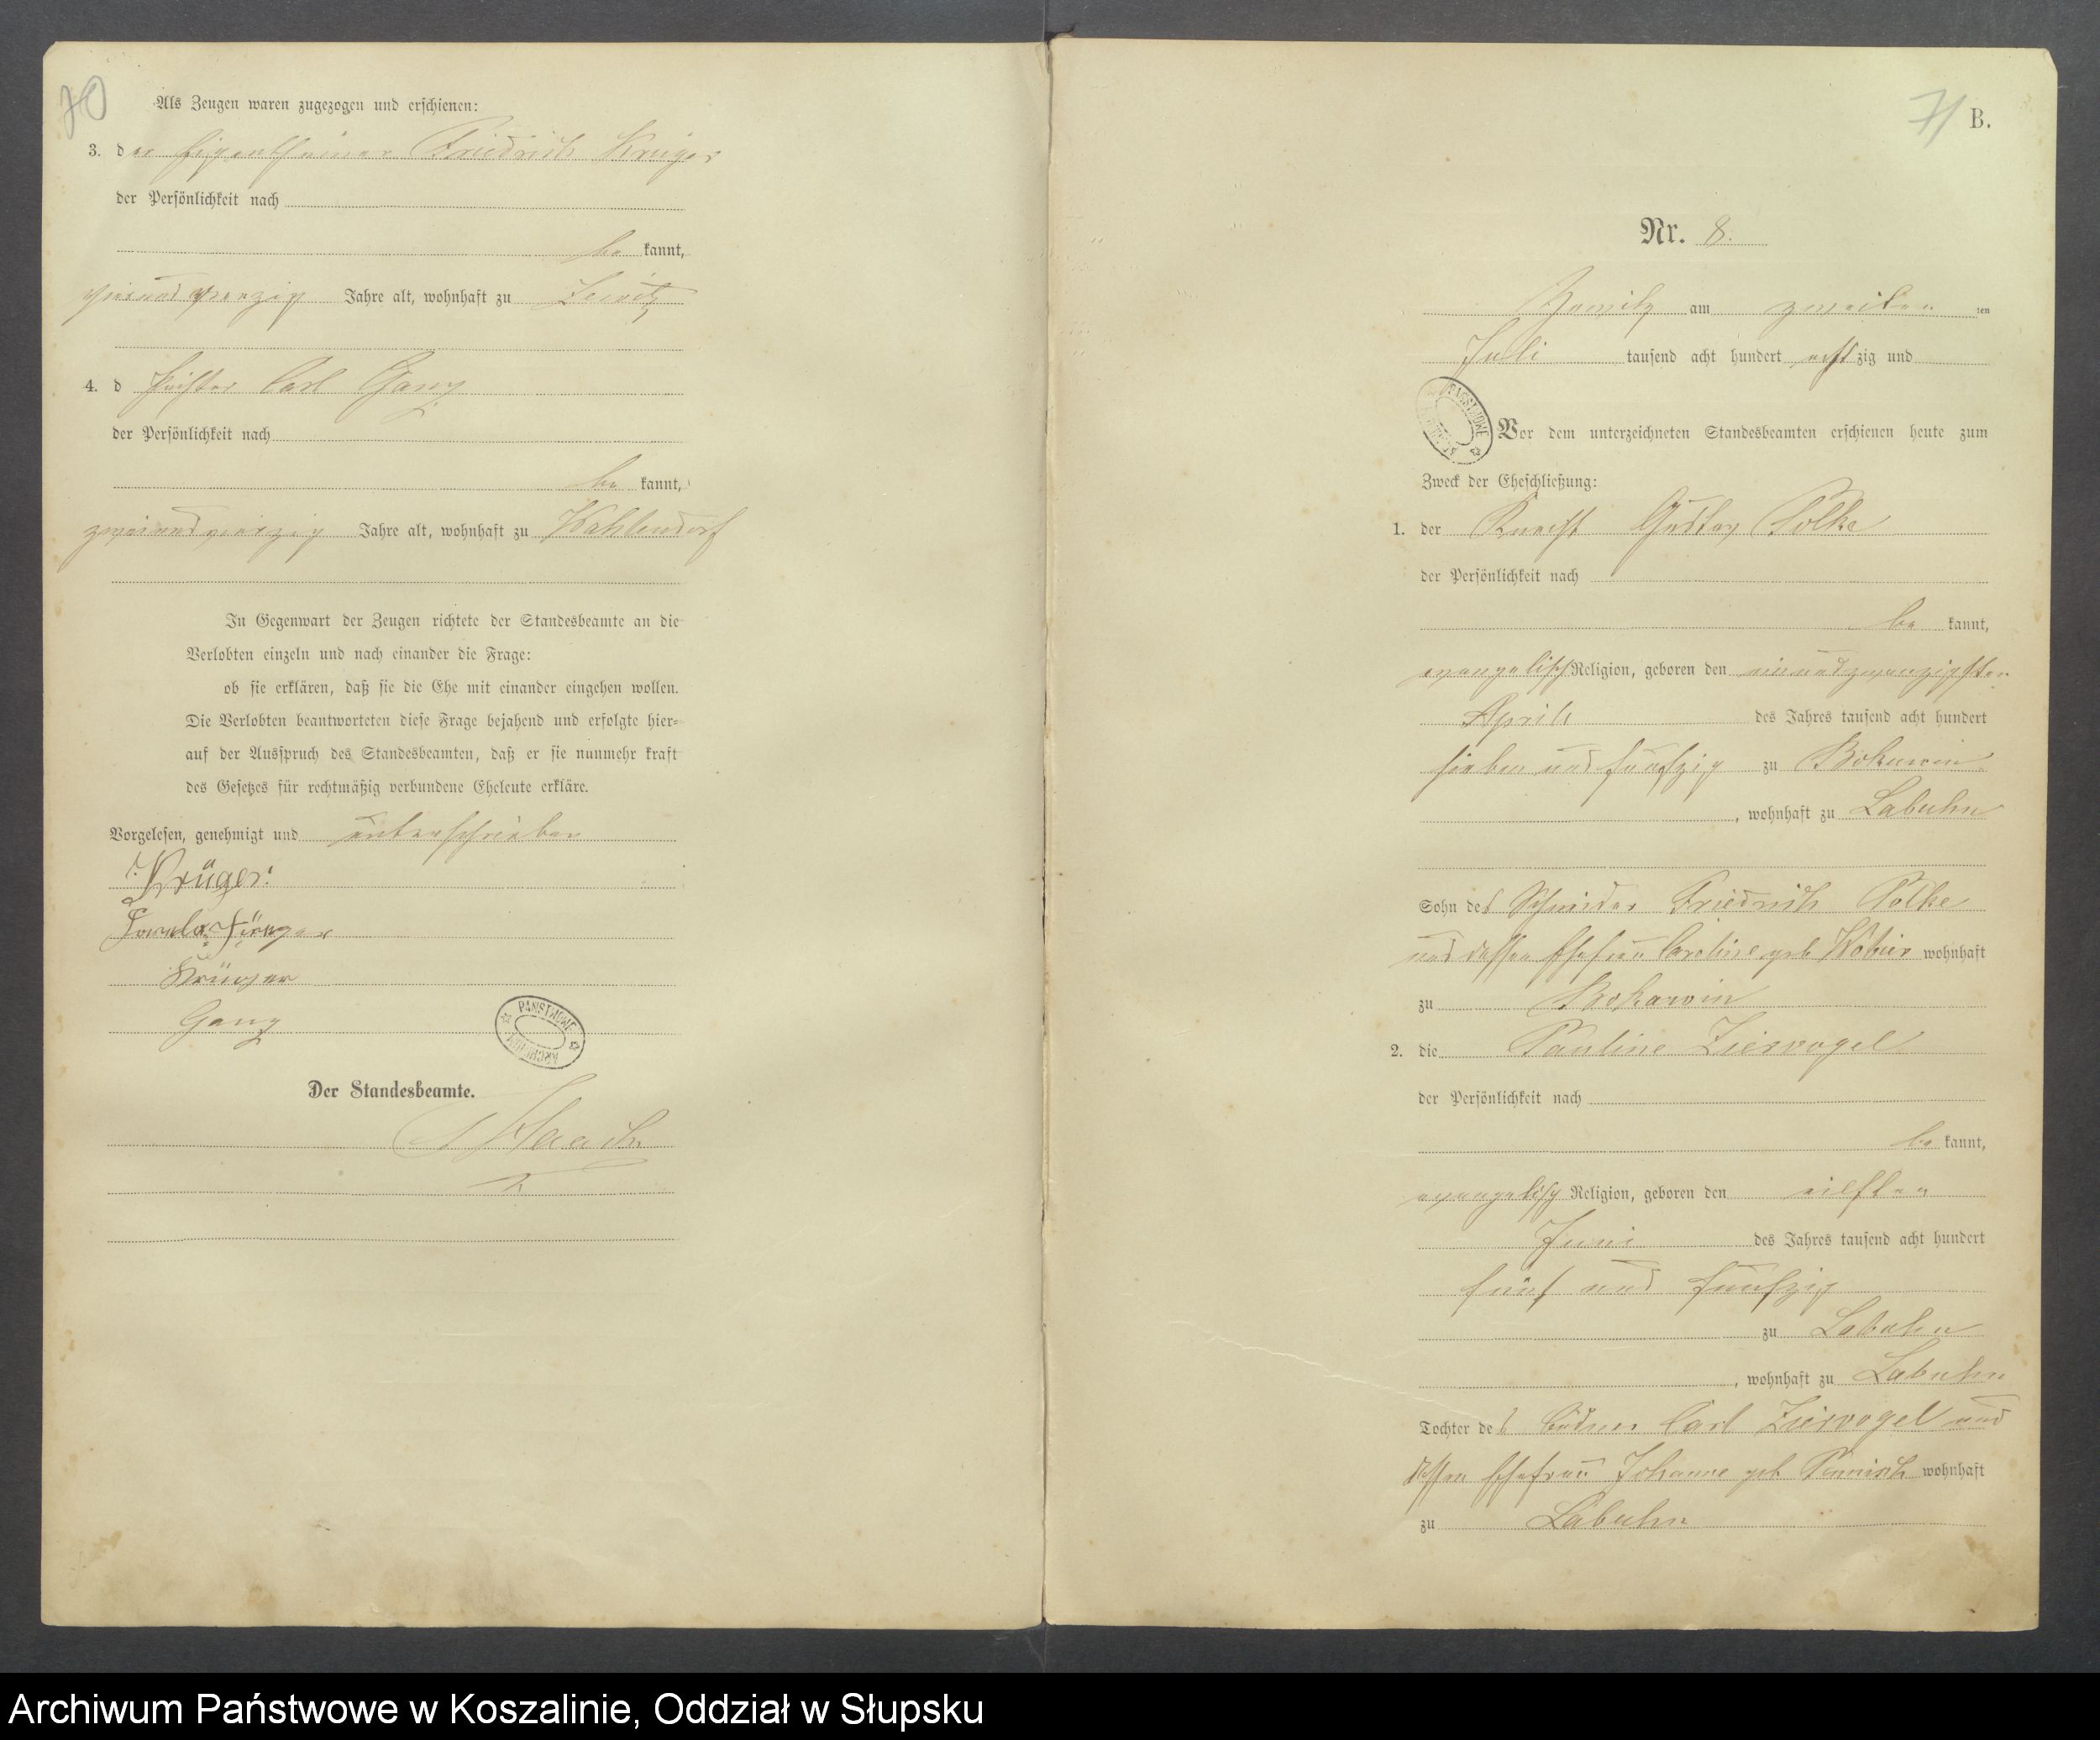 70
Als Zeugen waren zugezogen und erschienen:
3. der Eigenthümer Friedrich Krüger
der Persönlichkeit nach
be kannt,
vierundzwanzig Jahre alt, wohnhaft zu
4. d Carl Ganz
der Persönlichkeit nach
be kannt,
zweiundvierzig Jahre alt, wohnhaft zu Wahlendorf
In Gegenwart der Zeugen richtete der Standesbeamte an die
Verlobten einzeln und nach einander die Frage:
ob sie erklären, daß sie die Ehe mit einander eingehen wollen.
Die Verlobten beantworteten diese Frage bejahend und erfolgte hier-
auf der Ausspruch des Standesbeamten, daß er sie nunmehr kraft
des Gesetzes für rechtmäßig verbundene Eheleute erkläre.
Vorgelesen, genehmigt und unterschrieben
Krüger
Krüger
Ganz
PANSTWOWE ARCHIWUM
Der Standesbeamte.
71 B.
Nr. 8.
am zweiten ten
Juli tausend acht hundert acht zig und
PANSTWOWE
Vor dem unterzeichneten Standesbeamten erschienen heute zum
Zweck der Eheschließung:
1. der Knecht Gustav Polke
der Persönlichkeit nach
be kannt,
evangelisch Religion, geboren den einundzwanzigsten
April des Jahres tausend acht hundert
sieben und fünfzig zu
, wohnhaft zu Labuhn
Sohn des Schneider Friedrich Polke
und dessen Ehefrau Caroline geb wohnhaft
zu
2. die Pauline Ziervogel
der Persönlichkeit nach
be kannt,
evangelisch Religion, geboren den eilften
Juni des Jahres tausend acht hundert
fünf und fünfzig
zu Labuhn
, wohnhaft zu Labuhn
Tochter des Büdner Carl Ziervogel und
dessen Ehefrau Johanne geb wohnhaft
zu Labuhn
Archiwum Państwowe w Koszalinie, Oddział w Słupsku